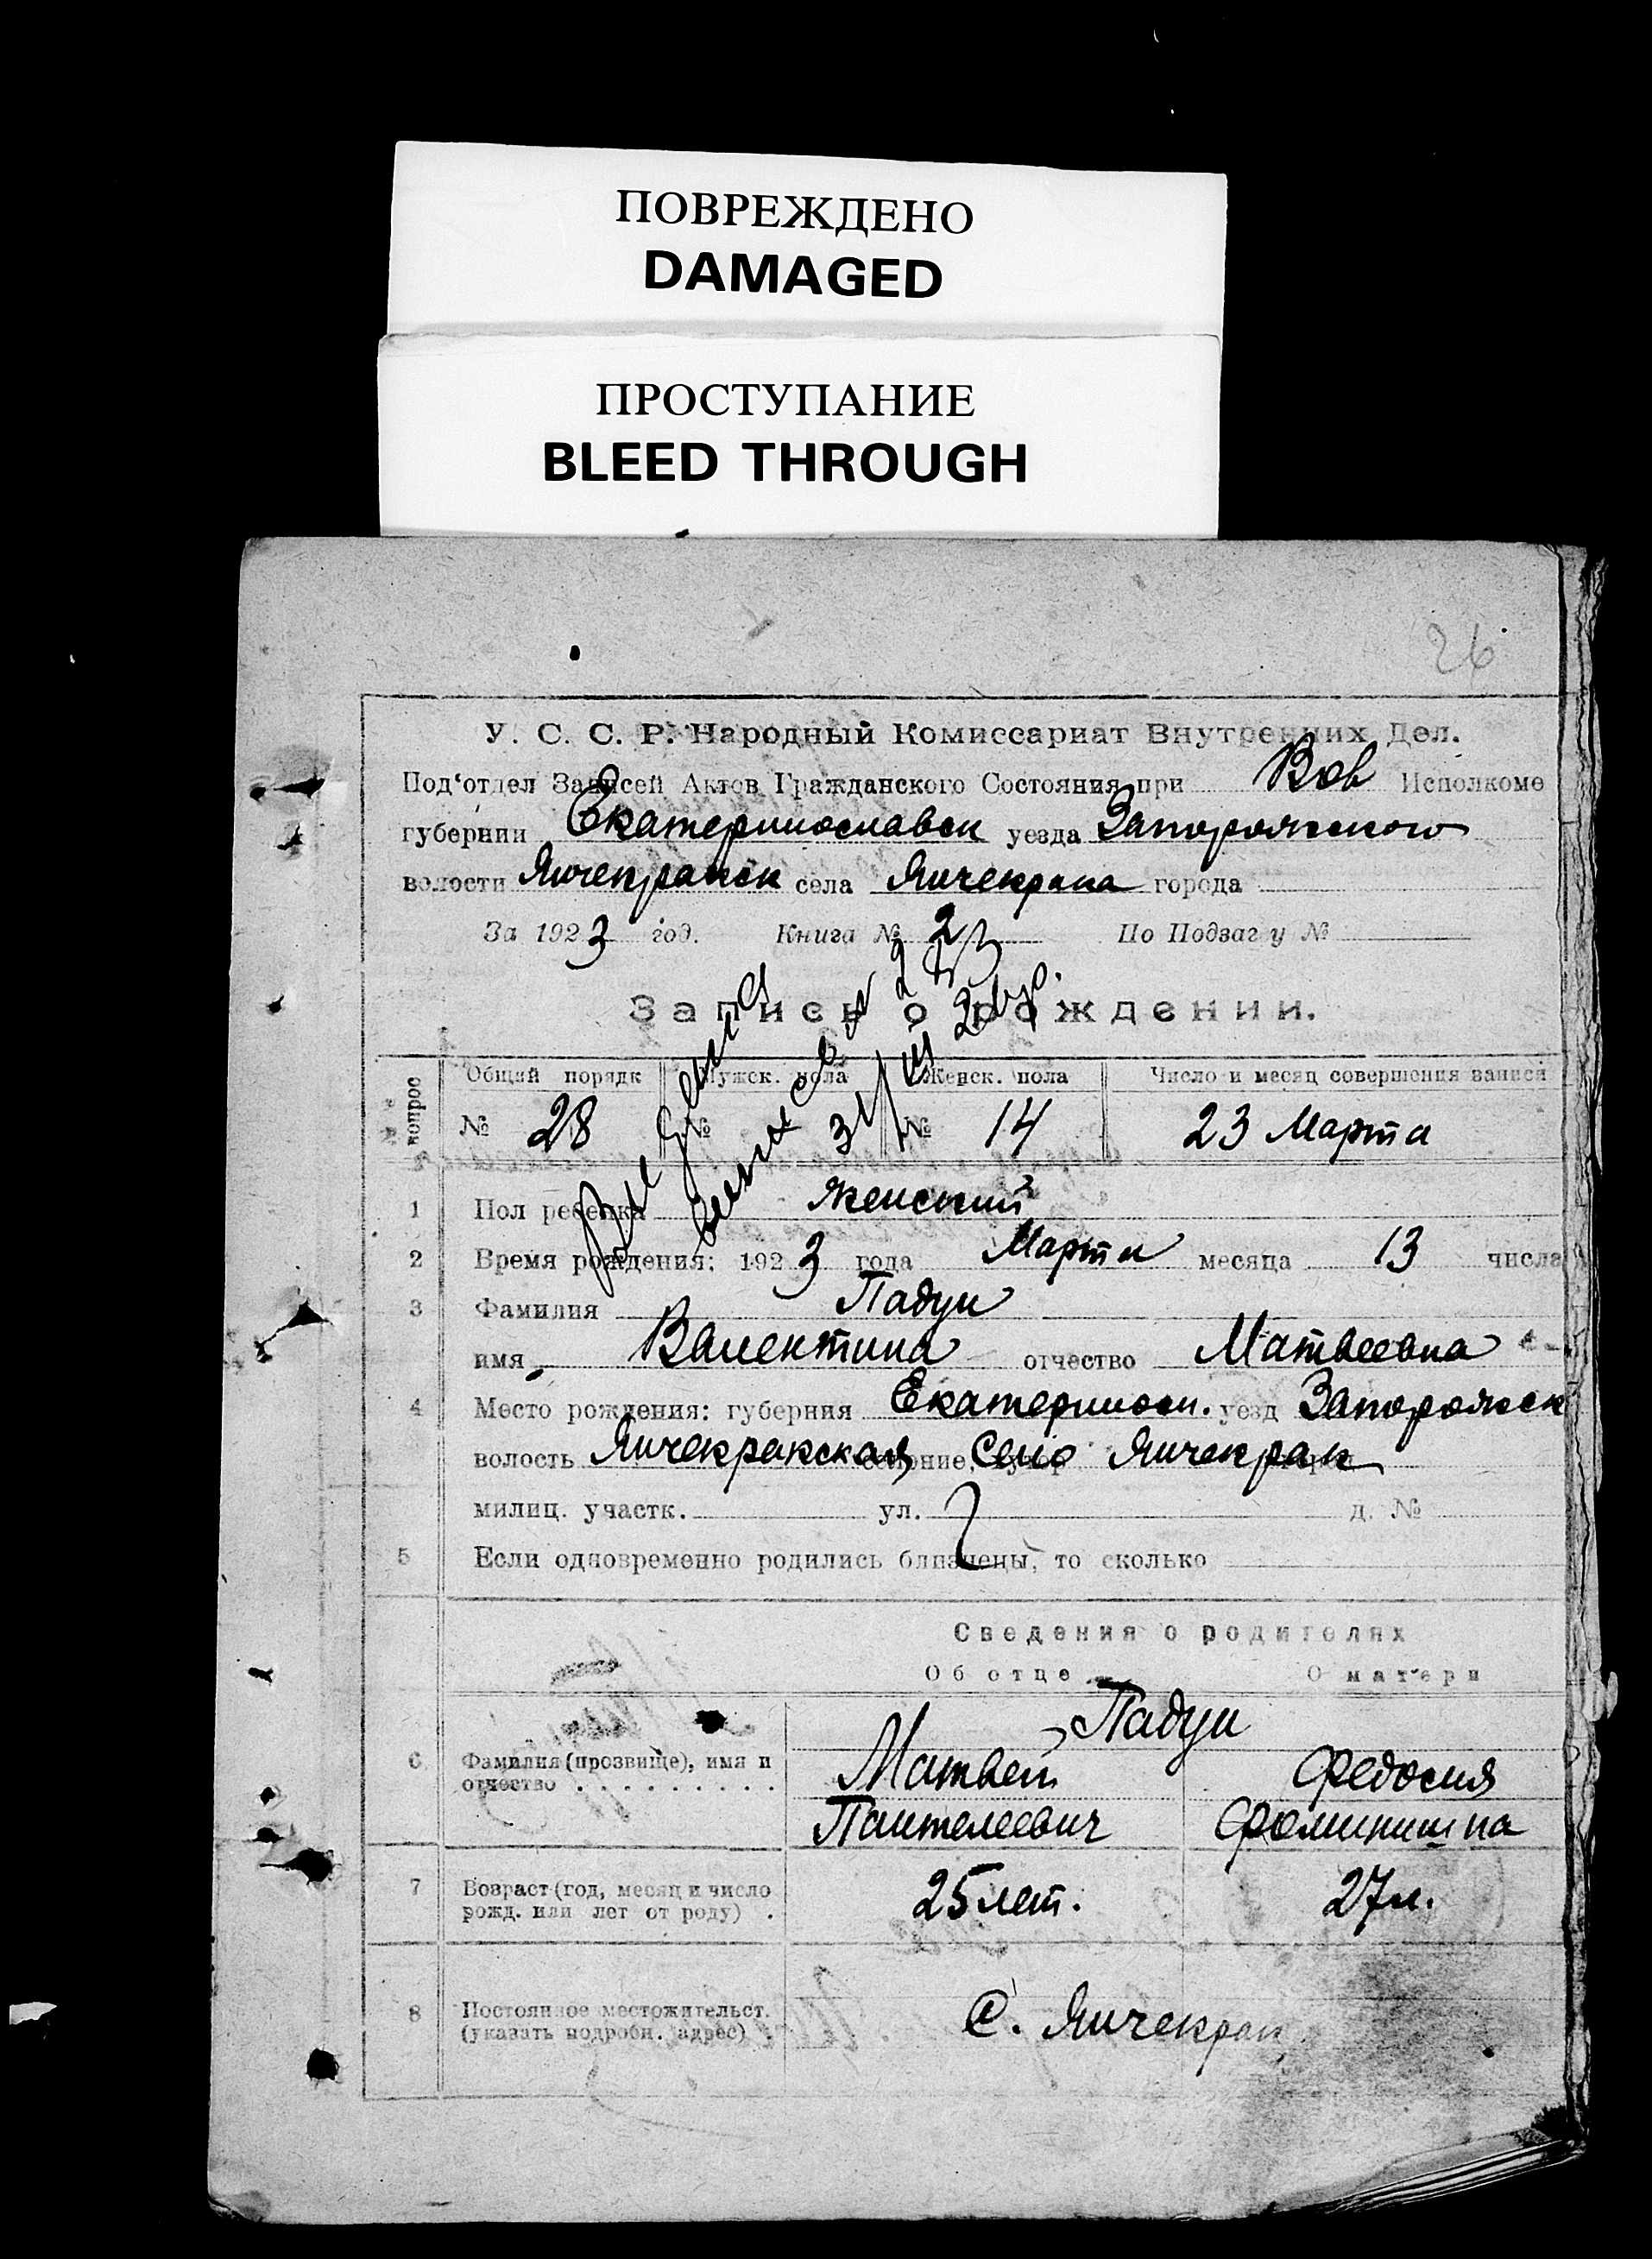 ПОВРЕЖДЕНО
DAMAGED
ПРОСТУПАНИЕ
BLEED THROUGH
26
У. С. С. Р. Народный Комиссариат Внутренних Дел.
Под'отдел Записей Актов Гражданского Состояния при Вов Исполкоме
губернии Екатеринославск уезда Запорожского
волости Янчекракск села Янчекрака города
За 1923 год. Книга № 2 По Подзаг у №
Запись о рождении.
№ вопрос Общий порядк Мужск. пола Женск. пола Число и месяц совершения записи
№ 28 № № 14 23 Марта
1 Пол ребенка женский
2 Время рождения: 1923 года Марта месяца 13 числа
3 Фамилия Падун
имя Валентина отчество Матвеевна
4 Место рождения: губерния Екатериносл. уезд Запорожск
волость Янчекракская селение, хутор Село Янчекрак
милиц. участк. ул. д. №
5 Если одновременно родились близнецы, то сколько
Сведения о родителях
Об отце О матери
Падун
6 Фамилия (прозвище), имя и отчество Матвей Федосия
Пантелеевич Фоминишна
7 Возраст (год, месяц и число рожд. или лет от роду) 25 лет. 27 л.
8 Постоянное местожительст. (указать подробн. адрес) С. Янчекрак